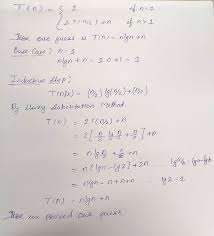 T(n) = { 1 if n=1
2T(n/2) + n if n>1
Here our guess is T(n) = n lgn + n
Base Case: n=1
n lgn + n = 1.0 + 1 = 1
Inductive Step:
T(n/2) = (n/2) lg(n/2) + (n/2)
By Using Substitution Method.
T(n) = 2T(n/2) + n
= 2[n/2 lg n/2 + n/2] + n
= n lg n/2 + n + n
= n(lgn - lg2) + 2n
= n lgn - n + n + n ..... lg2 = 1
T(n) = n lgn + n
Here we proved our guess